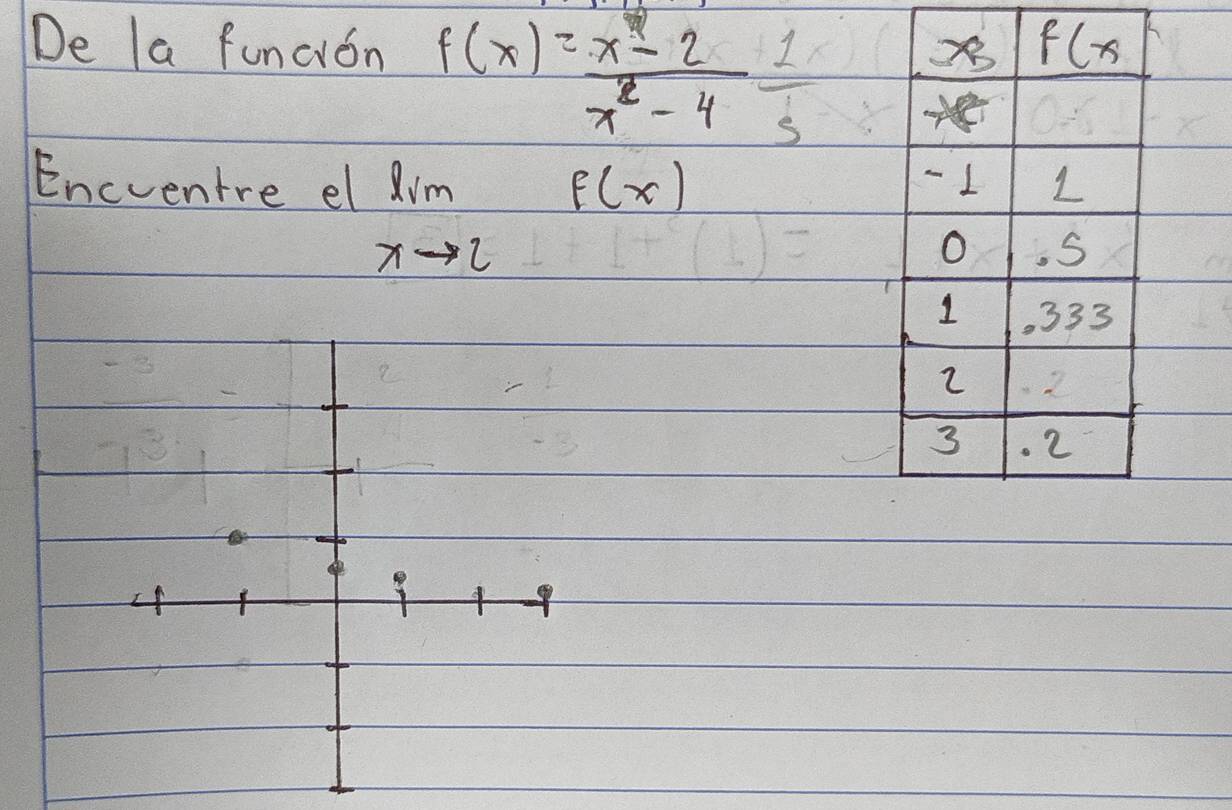 De la función f(x) = x - 2 / x² - 4 1/5
Encuentre el lim f(x)
x→2
x f(x
-1 1
0 .5
1 .333
2 .2
3 .2